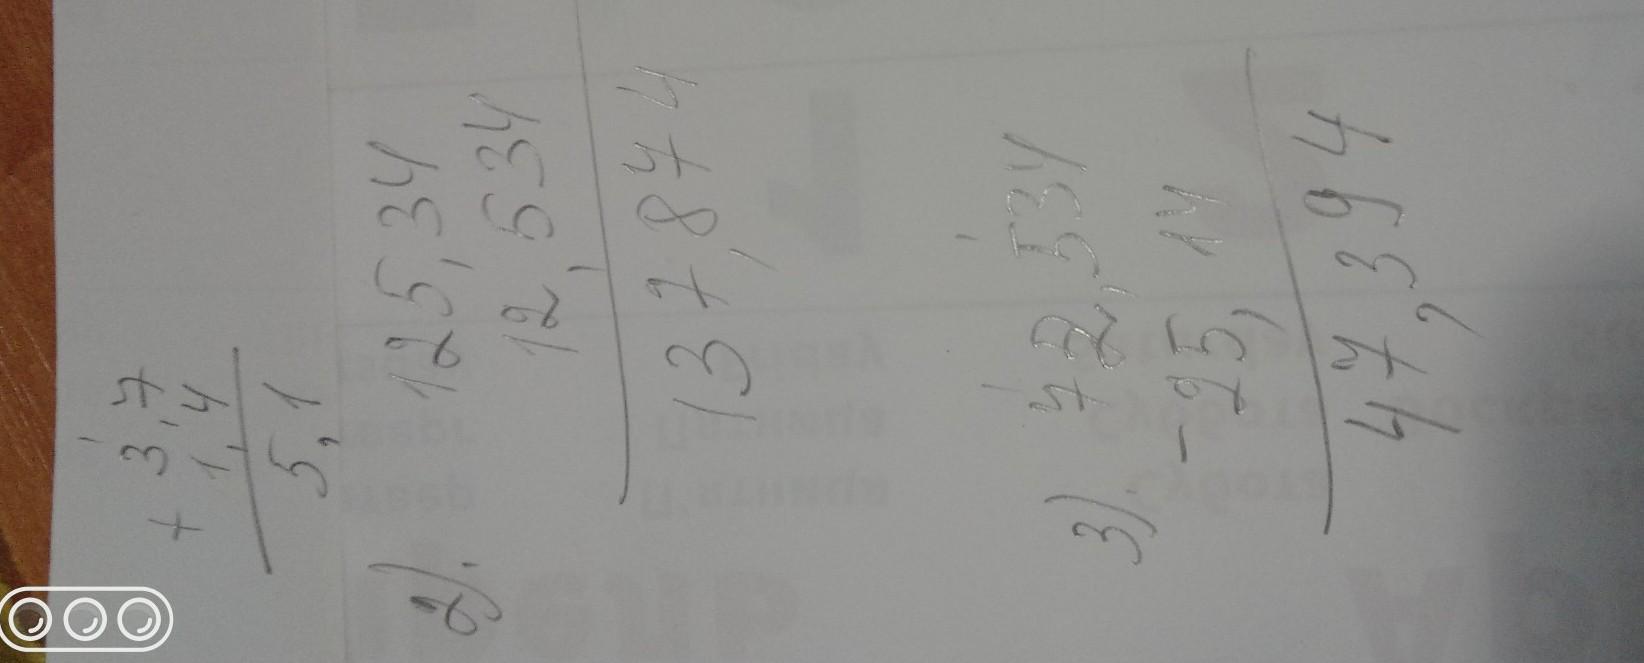 + 3,7
1,4
5,1
2).
125,34
12,534
137,874
3).
72,534
- 25,14
47,394